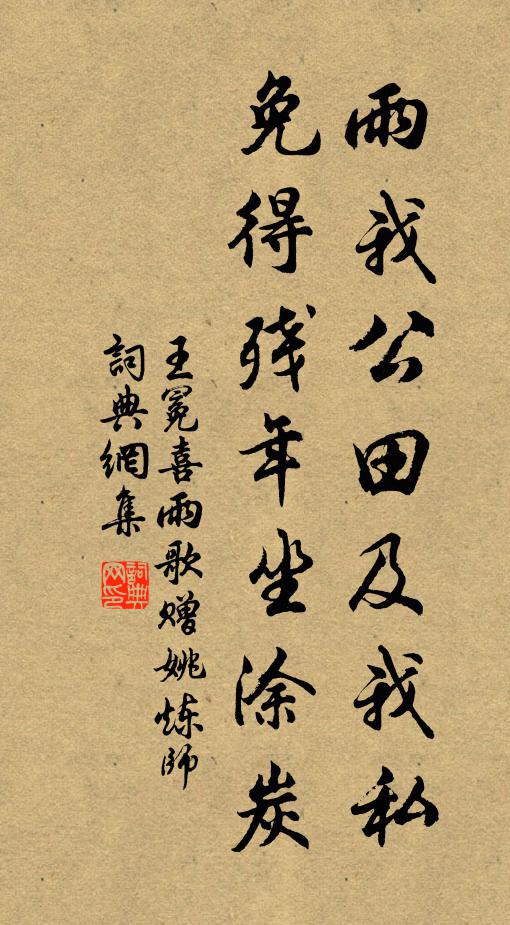 雨我公田及我私
免得残年坐涂炭
王冕喜雨歌赠姚炼師
詞典網集
詞典网印